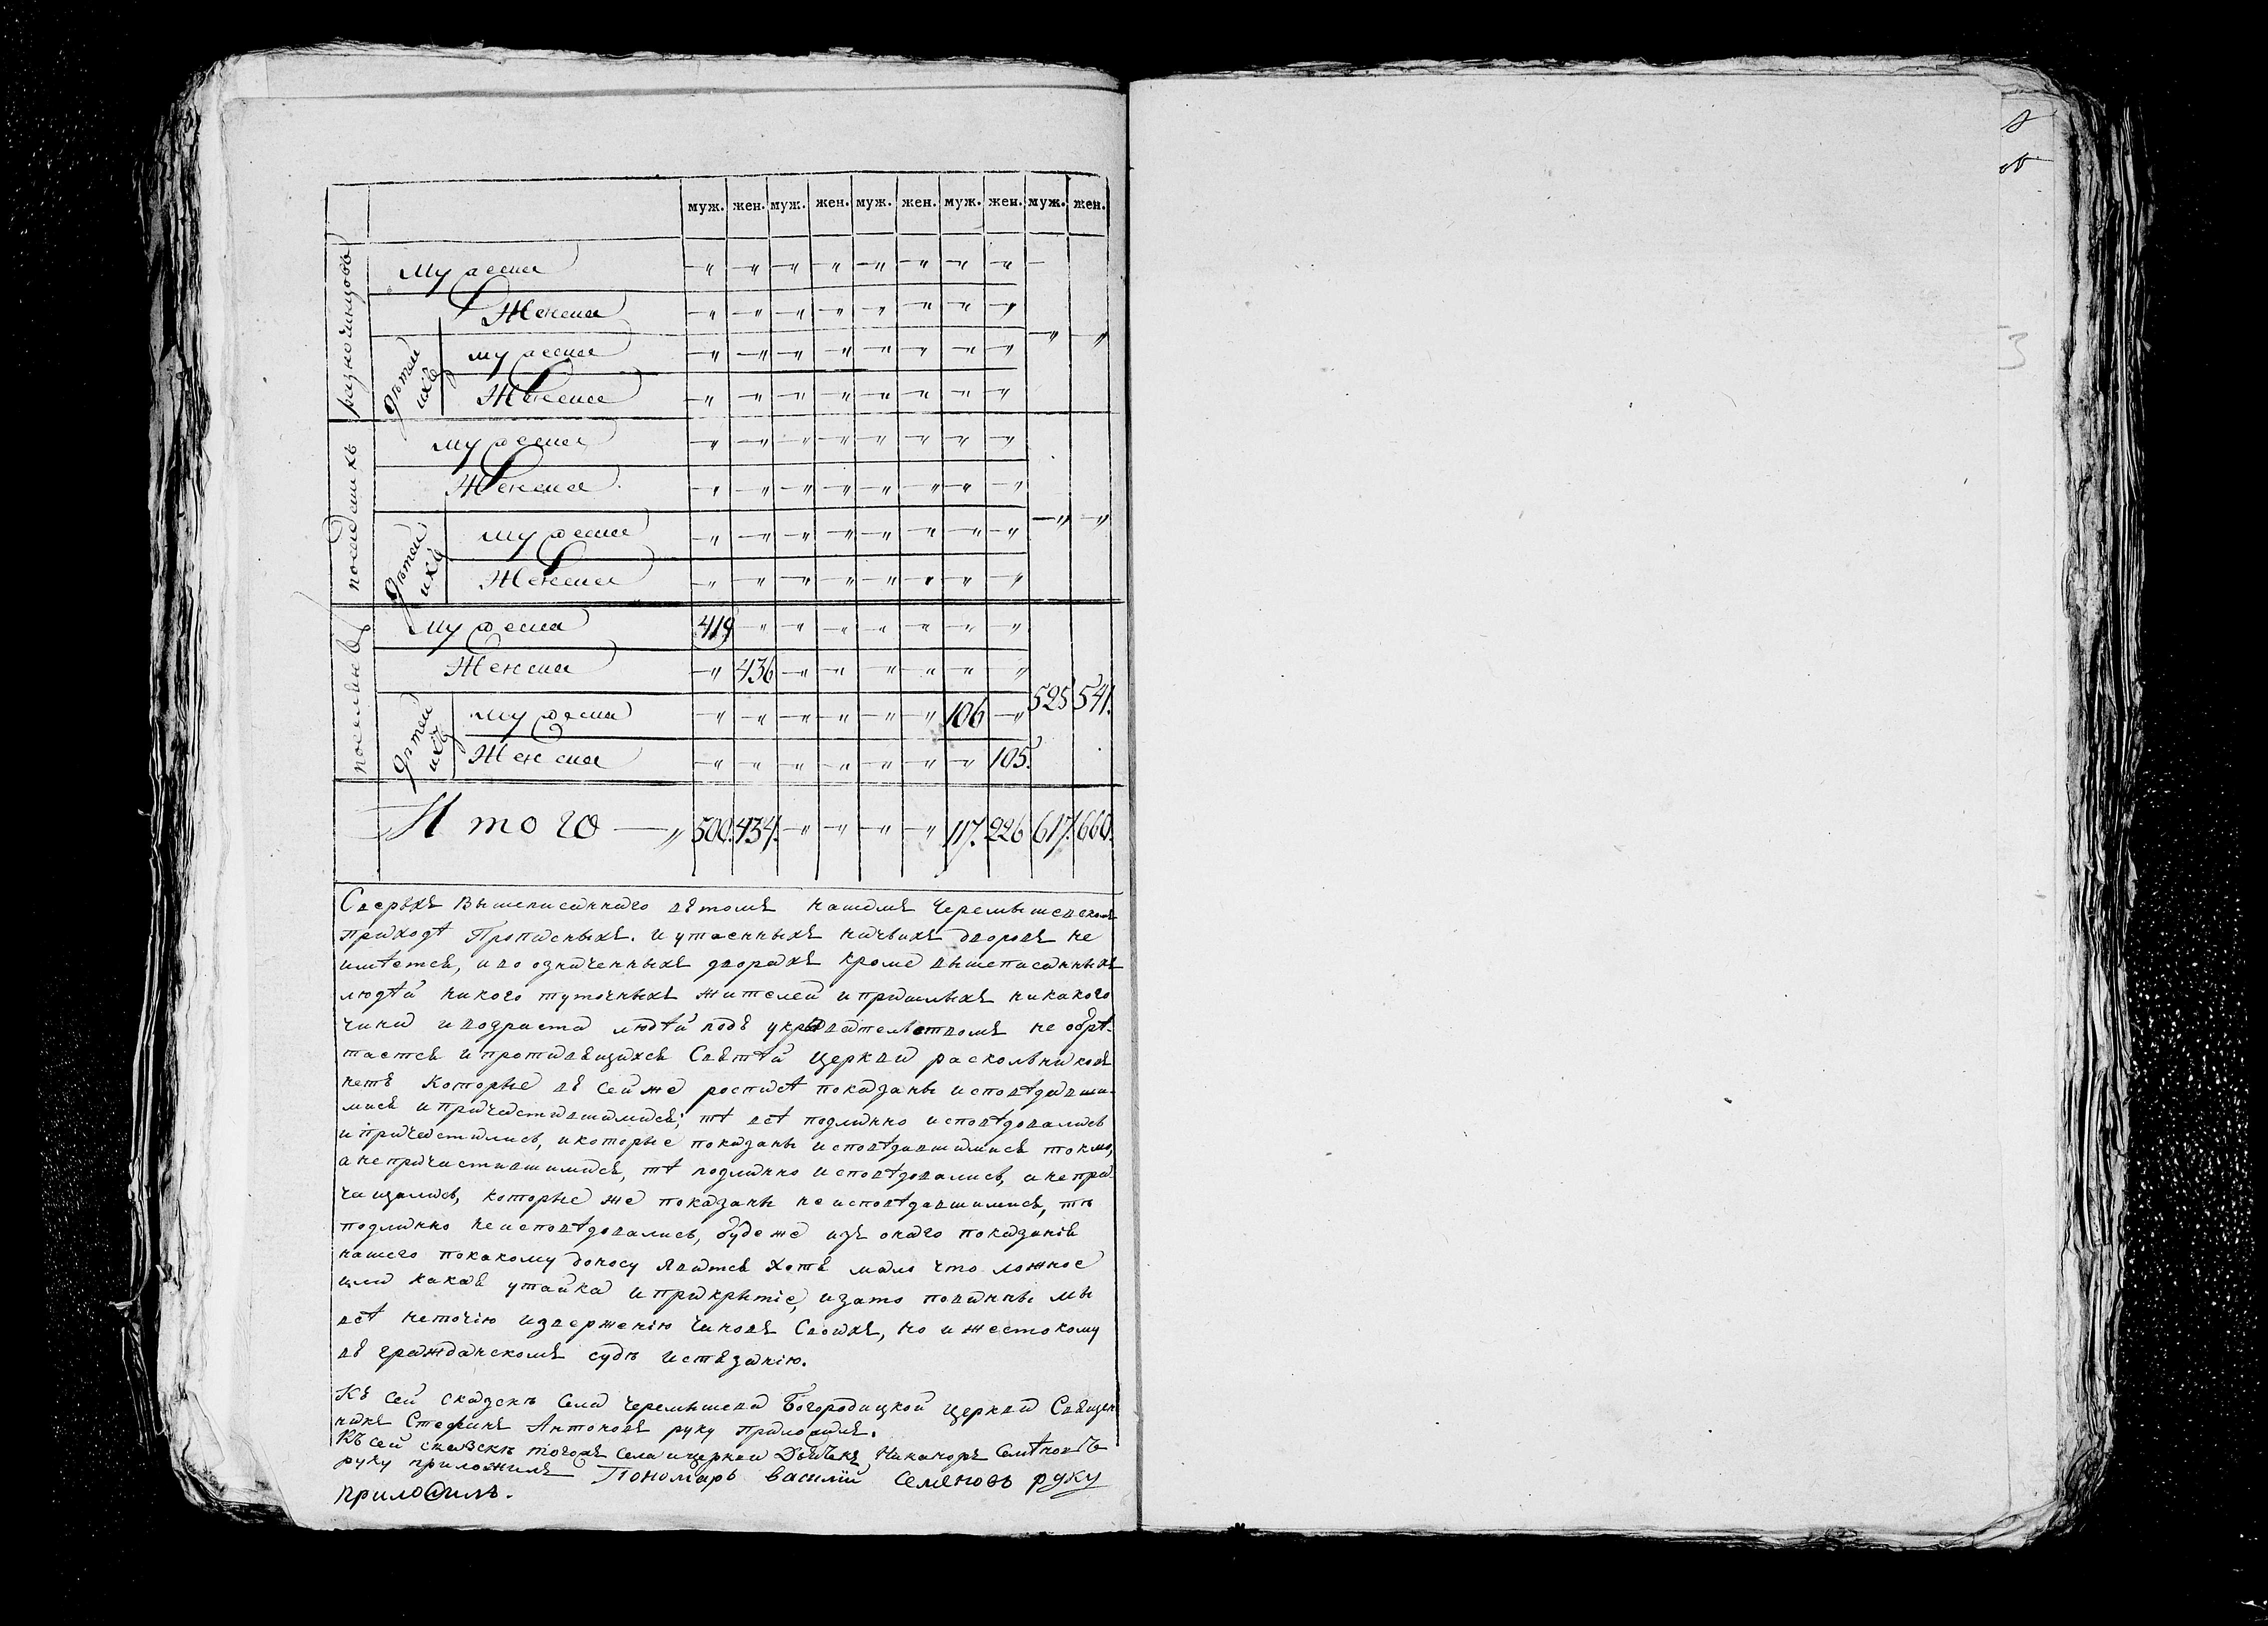 муж. жен. муж. жен. муж. жен. муж. жен. муж. жен.
разночинцовъ
мужеска — " — " — " — " — " — " — " — "
Женска — " — " — " — " — " — " — " — "
дѣтей ихъ
мужеска — " — " — " — " — " — " — " — " — " — "
Женска — " — " — " — " — " — " — " — "
посадскихъ
мужеска — " — " — " — " — " — " — " — "
Женска — " — " — " — " — " — " — " — "
дѣтей ихъ
мужеска — " — " — " — " — " — " — " — " — " — "
Женска — " — " — " — " — " — " — " — "
поселянъ
мужеска 419 — " — " — " — " — " — " — "
Женска — " 436 — " — " — " — " — " — "
дѣтей ихъ
мужеска — " — " — " — " — " — " 106 — " 525 541.
Женска — " — " — " — " — " — " — " 105.
Итого — " 500. 434. — " — " — " — " 117. 226 617. 660.
Сверхъ вышеписаннаго въ томъ нашемъ Черемышевскомъ
приходѣ прописныхъ. и утаенныхъ ничьихъ дворовъ не
имѣется, и во означенныхъ дворахъ кроме вышеписанныхъ
людѣй никого туточныхъ жителей и пришлыхъ никакого
чина и возраста людѣй подъ укрывательствомъ не обрѣ-
тается и противящихся Святѣй церкви раскольниковъ
нетъ которые въ сей же росписѣ показаны исповѣдавши-
мися и причастившимися; тѣ всѣ подлинно исповѣдовались
и причастились, и которые показаны исповѣдавшимися токмо,
а непричастившимися, тѣ подлинно исповѣдовались, а непри-
чащались, которые же показаны неисповѣдавшимися, тѣ
подлинно неисповѣдовались, буде же изъ онаго показанія
нашего покакому доносу явится хотя мало что ложное
или какая утайка и прикрытіе, изато повинны мы
всѣ неточію изверженію чиновъ Своихъ, но и жестокому
въ гражданскомъ судѣ истязанію.
Къ сей сказкѣ Села Черемышева Богородицкой церкви Священ
никъ Стефанъ Антоновъ руку приложилъ.
Къ сей сказкѣ тогожъ села и церкви Дьячекъ Никаноръ Семѣновъ
руку приложилъ Пономарь василій Семеновъ руку
приложилъ.
3